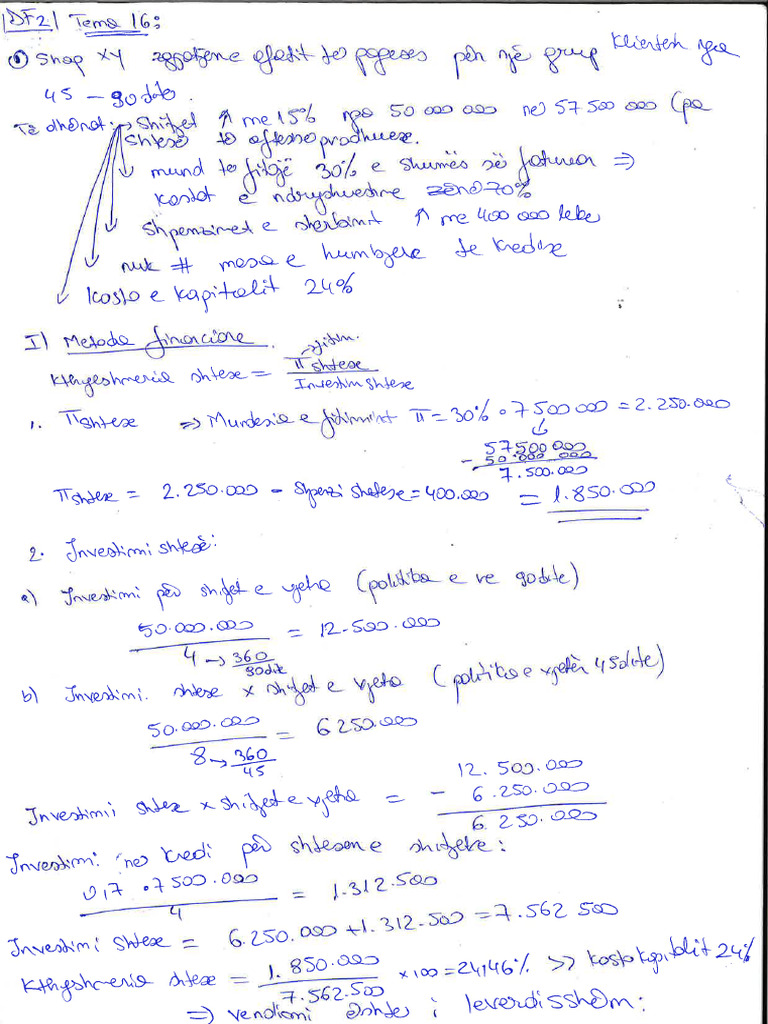 DF2 | Tema 16:
① Shoq XY zgjatjene afatit te pageses për një grup Klientesh nga
45 – 90 dite.
Te dhënat: → Shitjet ↑ me 15% nga 50 000 000 ne 57 500 000 (pa
shtese te aftesse prodhuese.
mund te fitojë 30% e shumës së faturuar ⇒
kostot e ndryshueshme zënë 70%
Shpenzimet e sherbimit ↑ me 400 000 leke
nuk # masa e humbjeve te kredise
kosto e kapitalit 24%
I) Metoda financiare
Kthyeshmeria shtese = π shtese → fitim. / Investim shtese
1. π shtese ⇒ Mundesia e fitimit π = 30% • 7 500 000 = 2.250.000
57 500 000
- 50 000 000
7.500.000
π shtese = 2.250.000 – shpenz shtese = 400.000 = 1.850.000
2. Investimi shtesë:
a) Investimi për shitjet e vjetra (politika e re 90 dite)
50.000.000 / 4 → 360 / 90 dite = 12.500.000
b) Investimi shtese x shitjet e vjetra (politika e vjetër 45 dite)
50.000.000 / 8 → 360 / 45 = 6 250.000
12.500.000
Investimi shtese x shitjet e vjetra = - 6.250.000
6.250.000
Investimi ne kredi për shtesen e shitjeve:
0,7 • 7 500.000 / 4 = 1.312.500
Investimi shtese = 6.250.000 + 1.312.500 = 7.562 500
Kthyshmeria shtese = 1.850.000 / 7.562.500 x 100 = 24,46% >> kosto kapitalit 24%
⇒ vendimi është i leverdisshëm: